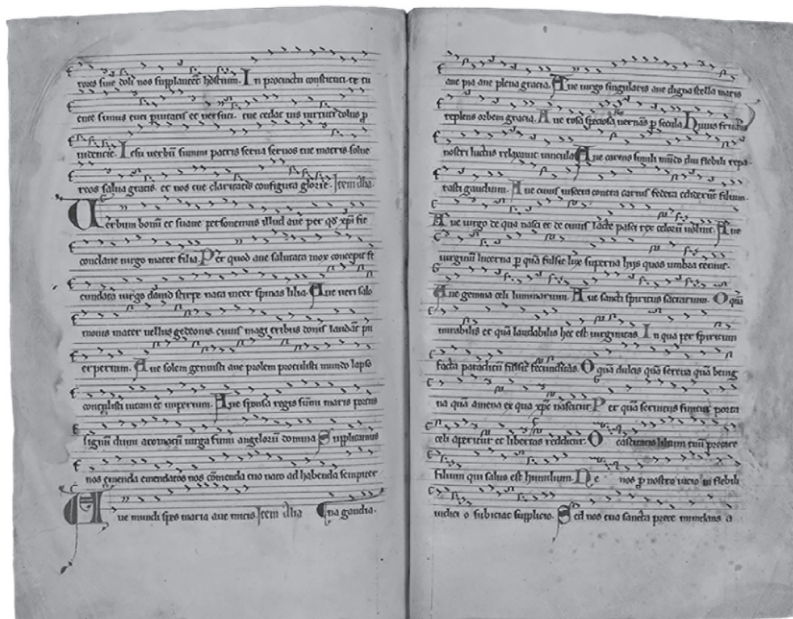 rroris siue doli nos supplantet hostium. In procinctu constituti te tu
tore simus tuti puicacis et uersuti. tue cedat uis uirtuti dolus p
uidencie. Iesu uerbū summi patris serua seruos tue matris solue
reos salua gratis. et nos tue claritatis configura glorie. Item alia
Uerbum bonū et suaue personemus illud aue per qd xp̄i fit
conclaue uirgo mater filia. Per quod aue salutata mox concepit fe
cundata uirgo dauid stirpe nata inter spinas lilia. Aue ueri salo
monis mater uellus gedeonis. cuius magi tribus donis laudāt pu
erperium. Aue solem genuisti aue prolem protulisti mundo lapso
contulisti uitam et imperium. Aue sponsa regis summi maris portus
signū dumi aromatū uirga fumi angeloꝝ domina. Supplicamus
nos emenda emendatos nos cōmenda tuo nato ad habenda sempiter
Aue mundi spes maria aue mitis Item alia na gaudia.
aue pia aue plena gracia. Aue uirgo singularis
replens orbem gracia. Aue rosa speciosa p secula
nostri luctus relaxauit uincula Aue carens simili mūdo diu flebili repa
rasti gaudium. Aue cuius uiscera contra carnis federa ediderunt filium.
Aue uirgo de qua nasci et de cuius lacte pasci rex celoꝝ uoluit. Aue
uirginū lucerna p quā fulsit lux superna hijs quos umbra tenuit.
Aue gemma celi luminarium. Aue sancti spiritus sacrarium. O quā
mirabilis et quā laudabilis hec est uirginitas. In qua per spiritum
facta paraclitū fulsit fecunditas. O quā dulcis quā serena quā benig
na quā amena ex qua xp̄c nascitur. Per quā seruitus finitur porta
celi aperitur et libertas redditur. O castitatis lilium tuū precare
filium qui salus est humilium. Ne nos p nostro uicio in flebili
iudicio subiciat supplicio. Sed nos tua sancta prece mundans a